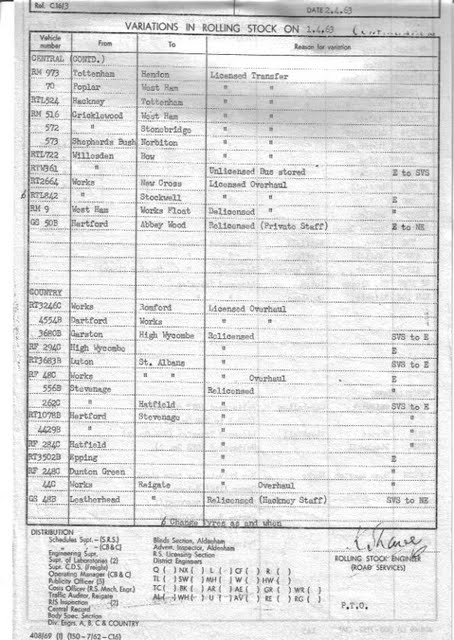 Ref. C3613 DATE 2.4.63
VARIATIONS IN ROLLING STOCK ON 1.4.63 (Continuation)
Vehicle number From To Reason for variation
CENTRAL (CONTD.)
RM 973 Tottenham Hendon Licensed Transfer
70 Poplar West Ham " "
RTL524 Hackney Tottenham " "
RM 516 Cricklewood West Ham " "
572 " Stonebridge " "
573 Shepherds Bush Norbiton " "
RTL722 Willesden Bow " "
RTW361 Unlicensed Bus stored E to SVS
RT2664 Works New Cross Licensed Overhaul
6 RTL842 " Stockwell " " E
RM 9 West Ham Works Float Delicensed " "
GS 50B Hertford Abbey Wood Relicensed (Private Staff) E to NE
COUNTRY
RT3246C Works Romford Licensed Overhaul
4554B Dartford Works " "
3680B Garston High Wycombe Relicensed SVS to E
RF 294C High Wycombe " E
RT3683B Luton St. Albans " SVS to E
RF 48C Works " " " Overhaul E
556B Stevenage Relicensed "
262C " Hatfield " SVS to E
RT1078B Hertford Stevenage " "
4429B " " "
RF 284C Hatfield " "
RT3502B Epping " E
RF 248C Dunton Green " "
44C Works Reigate " Overhaul "
GS 48B Leatherhead " Relicensed (Hackney Staff) SVS to NE
6 Change Tyres as and when
DISTRIBUTION
Schedules Supt.-(S.R.S.)
" " (CB&C)
Engineering Supt.
Supt. of Laboratories (2)
Supt. C.D.S. (Freight)
Operating Manager (CB & C)
Publicity Officer (5)
Gass Officer (R.S. Mech. Engr.)
Traffic Auditor, Reigate
RIS Inspection (2)
Central Record
Body Spec. Section
Div. Engrs. A, B, C & COUNTRY
Blinds Section, Aldenham
Advert. Inspector, Aldenham
R.S. Licensing Section
District Engineers
Q ( ) NX ( ) L ( ) CF ( ) R ( )
TL ( ) SW ( ) MH ( ) W ( ) HW ( )
ROLLING STOCK ENGINEER
(ROAD SERVICES)
P.T.O.